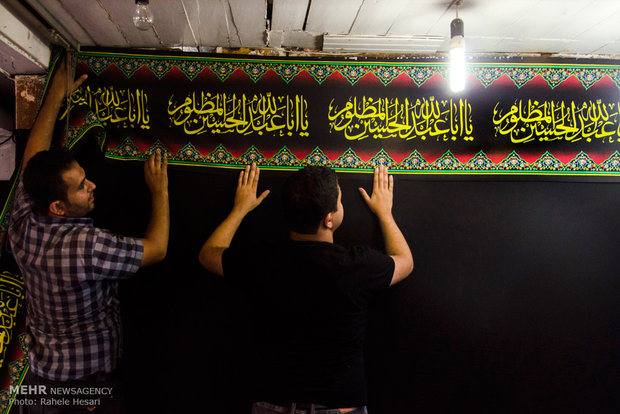 یا اباعبدالله الحسین المظلوم یا اباعبدالله الحسین المظلوم یا اباعبدالله الحسین المظلوم یا اباعبدالله
MEHR NEWSAGENCY
Photo: Rahele Hesari